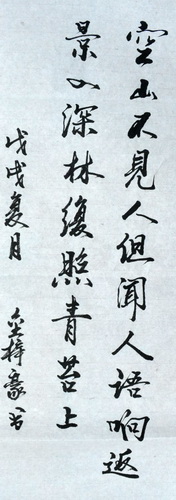 空山不見人但聞人语响返
景入深林復照青苔上
戊戌夏月
梓豪书